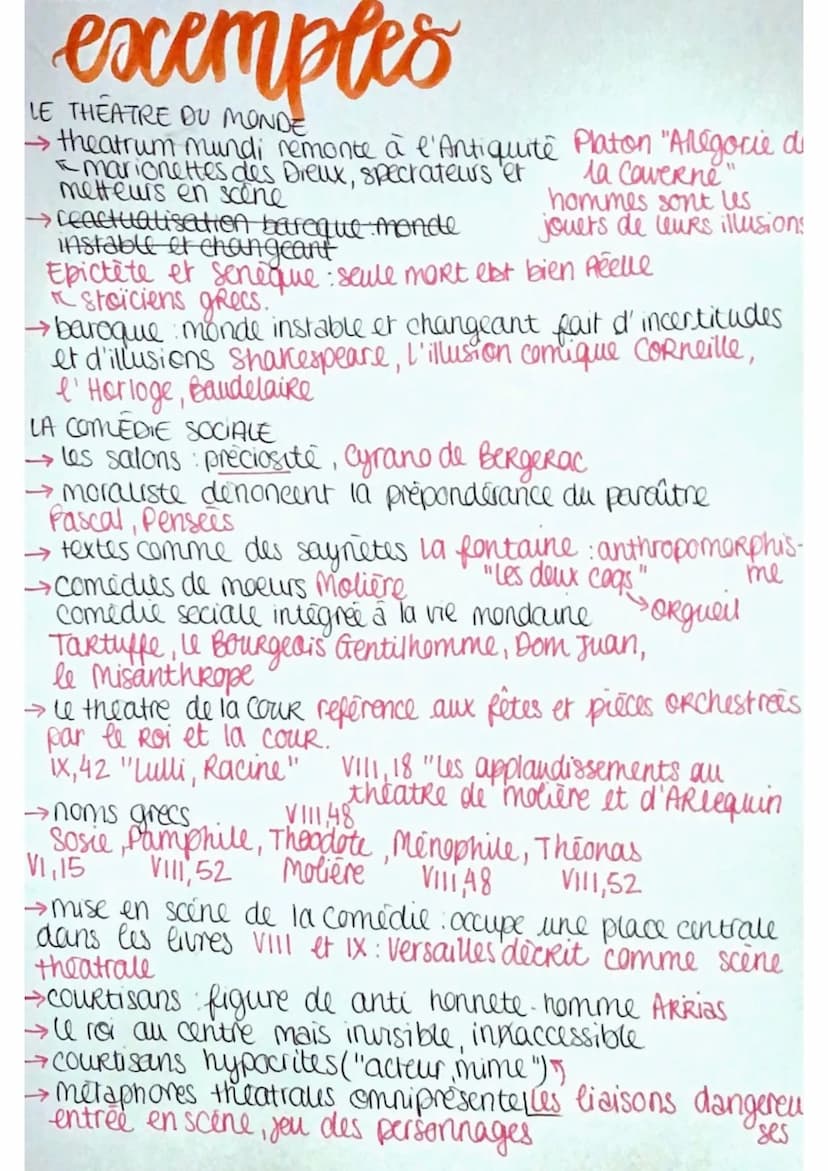 exemples
LE THÉATRE DU MONDE
→ theatrum mundi remonte à l'Antiquité Platon "Allégorie de
↖ marionettes des Dieux, spectateurs et la Caverne"
metteurs en scène hommes sont les
→ reactualisation baroque monde jouets de leurs illusions
instable et changeant
Epictète et Senèque : seule mort est bien Réelle
↖ stoïciens gRecs.
→ baroque : monde instable et changeant fait d'incertitudes
et d'illusions Shakespeare, L'illusion comique CORneille,
l'Horloge, Baudelaire
LA COMÉDIE SOCIALE
→ les salons : préciosité, Cyrano de BERGERAC
→ moraliste dénoncent la prépondérance du paraître
Pascal, Pensées
→ textes comme des saynètes La fontaine : anthropomoRphis-
"les deux coqs" me
→ comédies de moeurs Molière
comédie sociale intégrée à la vie mondaine ↘ orgueil
Tartuffe, le Bourgeois Gentilhomme, Dom Juan,
le Misanthrope
→ le théatre de la cour reférence aux fêtes et pièces ORchestrées
par le Roi et la cour.
IX,42 "Lulli, Racine" VIII,18 "les applaudissements au
théatre de molière et d'ARlequin
→ noms grecs VIII,48
Sosie, Pamphile, Théodote, Ménophile, Théonas
VI,15 VIII,52 Molière VIII,48 VIII,52
→ mise en scène de la comédie : occupe une place centrale
dans les livres VIII et IX : Versailles décRit comme scène
théatrale
→ courtisans : figure de anti honnete-homme ARRias
→ le roi au centre mais invisible, innaccessible
→ courtisans hypocrites ("acteur, mime")
→ métaphores théatrales omniprésente les liaisons dangereu
entrée en scène, jeu des personnages ses